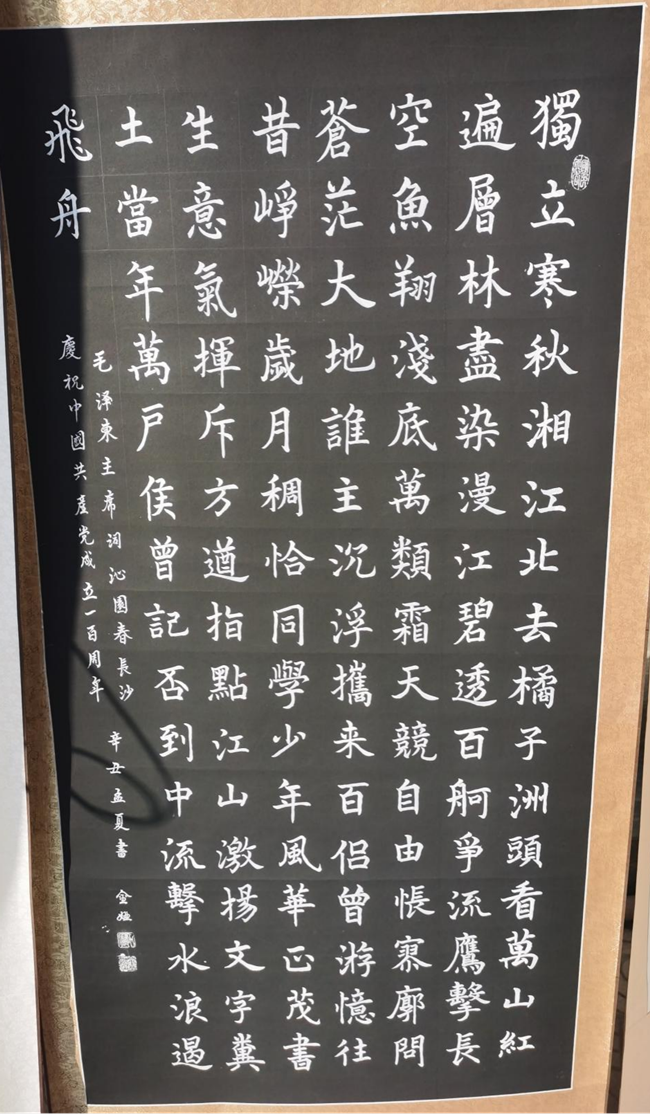 獨立寒秋湘江北去橘子洲頭看萬山紅
遍層林盡染漫江碧透百舸爭流鷹擊長
空魚翔淺底萬類霜天競自由悵寥廓問
蒼茫大地誰主沉浮攜来百侣曾游憶往
昔崢嶸歲月稠恰同學少年風華正茂書
生意氣揮斥方遒指點江山激揚文字糞
土當年萬户侯曾記否到中流擊水浪遏
飛舟
毛澤東主席词沁園春長沙
慶祝中國共產党成立一百周年
辛丑孟夏書